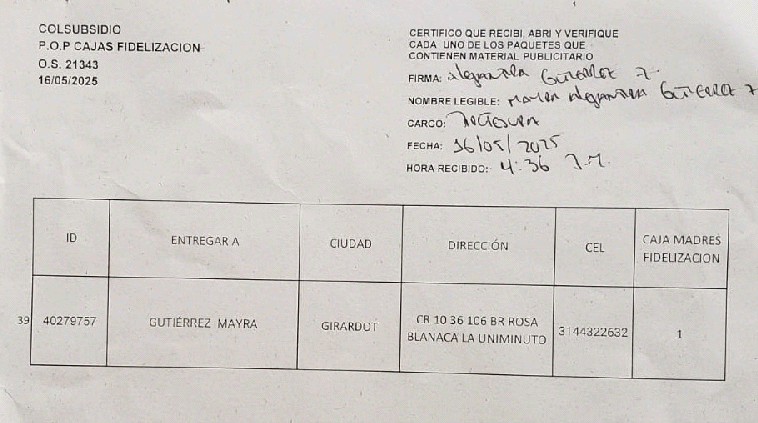 COLSUBSIDIO
P.O.P CAJAS FIDELIZACION
O.S. 21343
16/05/2025
CERTIFICO QUE RECIBI, ABRI Y VERIFIQUE
CADA UNO DE LOS PAQUETES QUE
CONTIENEN MATERIAL PUBLICITARIO
FIRMA: Alejandra Gutierrez
NOMBRE LEGIBLE: Mayra Alejandra Gutierrez
CARGO:
FECHA: 16/05/2025
HORA RECIBIDO: 4:36
ID ENTREGAR A CIUDAD DIRECCIÓN CEL CAJA MADRES
FIDELIZACION
39 40279757 GUTIÉRREZ MAYRA GIRARDOT CR 10 36 106 BR ROSA 3144322632 1
BLANACA LA UNIMINUTO